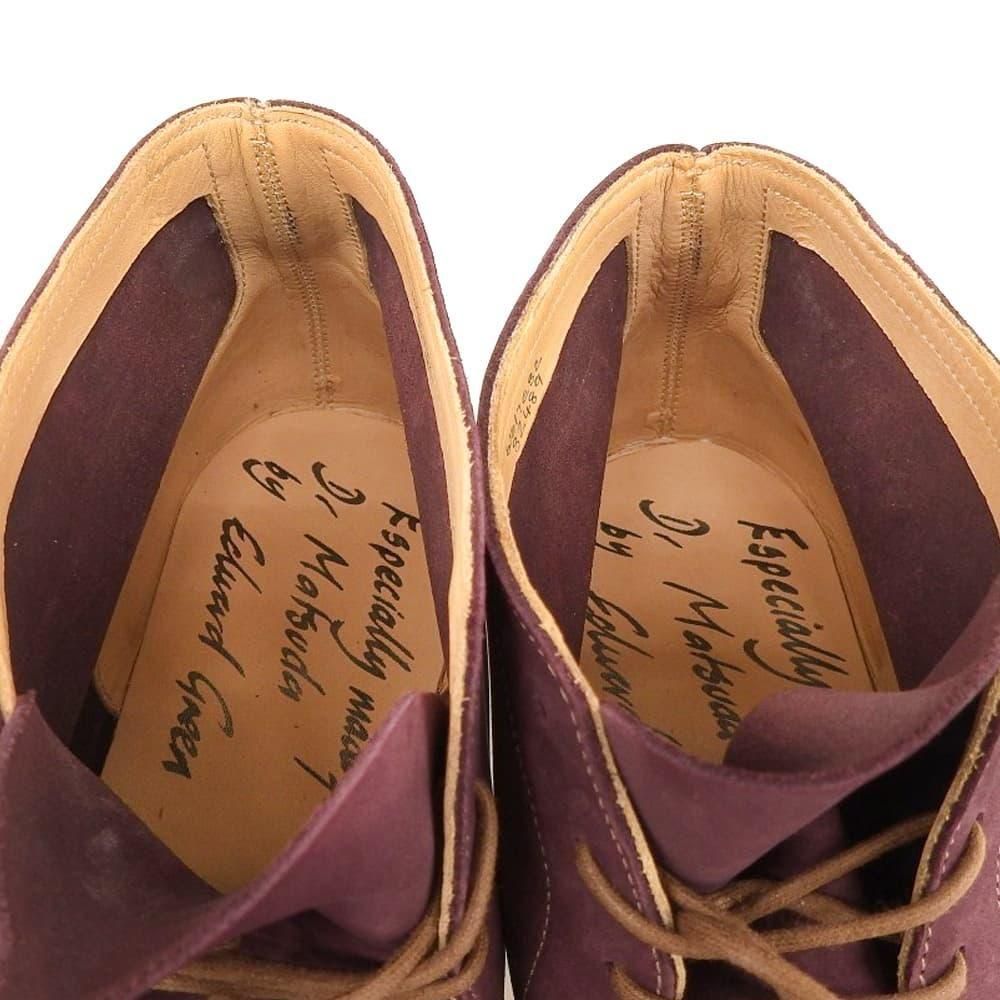 Especially made for
Dr Matsuda
by
Edward Green
Especially
Dr Matsuda
by
Edward